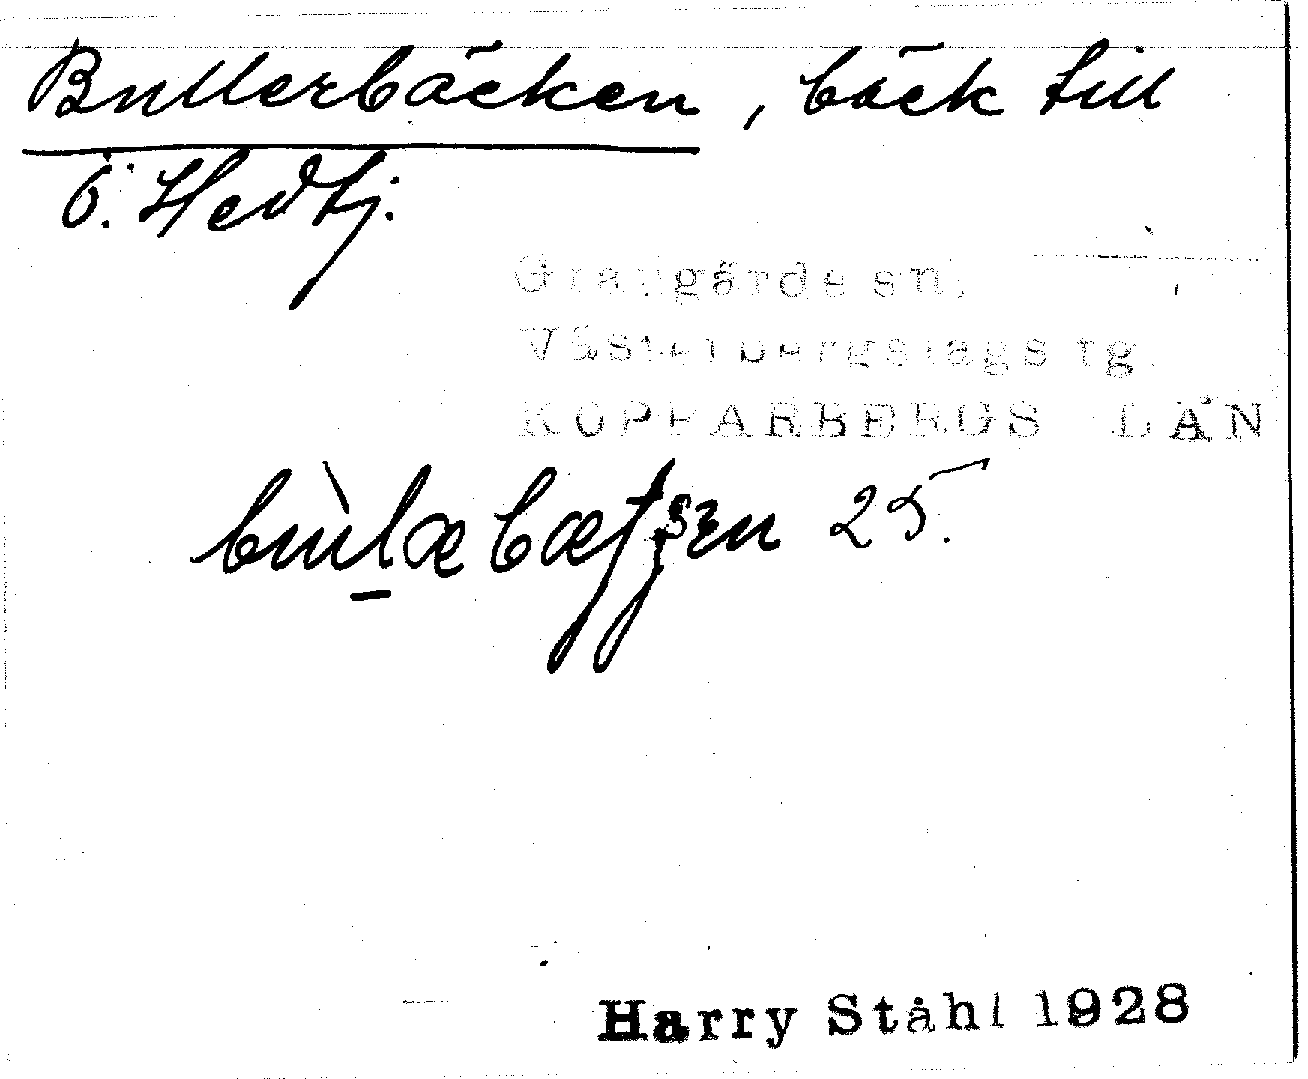 Bullerbäcken, bäck till
Ö. Hedtj.
Grangärde sn,
Västerbergslags tg
KOPPARBERGS LÄN
25.
Harry Ståhl 1928